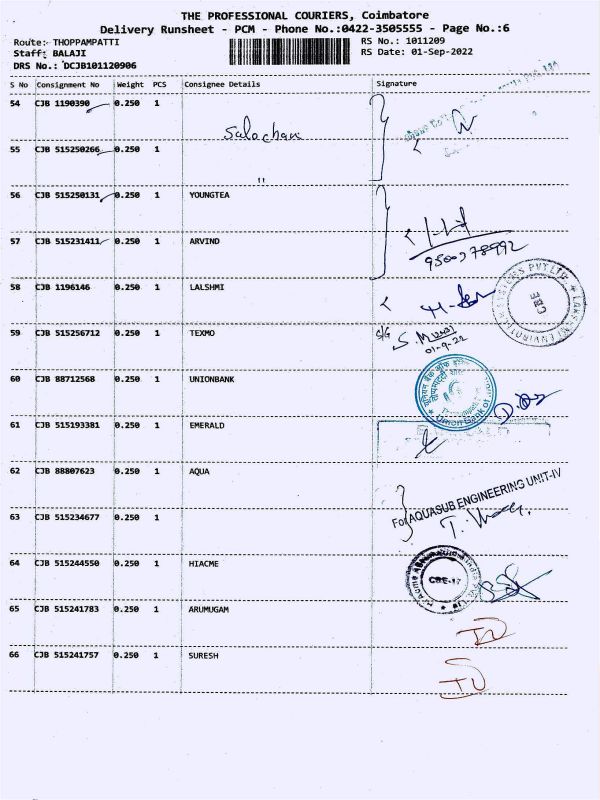 THE PROFESSIONAL COURIERS, Coimbatore
Delivery Runsheet - PCM - Phone No.:0422-3505555 - Page No.:6
Route: THOPPAMPATTI
RS No.: 1011209
Staff: BALAJI
RS Date: 01-Sep-2022
DRS No.: DCJB101120906
S No Consignment No Weight PCS Consignee Details Signature
54 CJB 1190390 0.250 1
Sulochan
55 CJB 515250266 0.250 1
"
56 CJB 515250131 0.250 1 YOUNGTEA
57 CJB 515231411 0.250 1 ARVIND
58 CJB 1196146 0.250 1 LALSHMI
CBE
59 CJB 515256712 0.250 1 TEXMO
S/G
01-9-22
60 CJB 88712568 0.250 1 UNIONBANK
Union Bank of
61 CJB 515193381 0.250 1 EMERALD
62 CJB 88807623 0.250 1 AQUA
For AQUASUB ENGINEERING UNIT-IV
63 CJB 515234677 0.250 1
64 CJB 515244550 0.250 1 HIACME
CBE-17
65 CJB 515241783 0.250 1 ARUMUGAM
66 CJB 515241757 0.250 1 SURESH